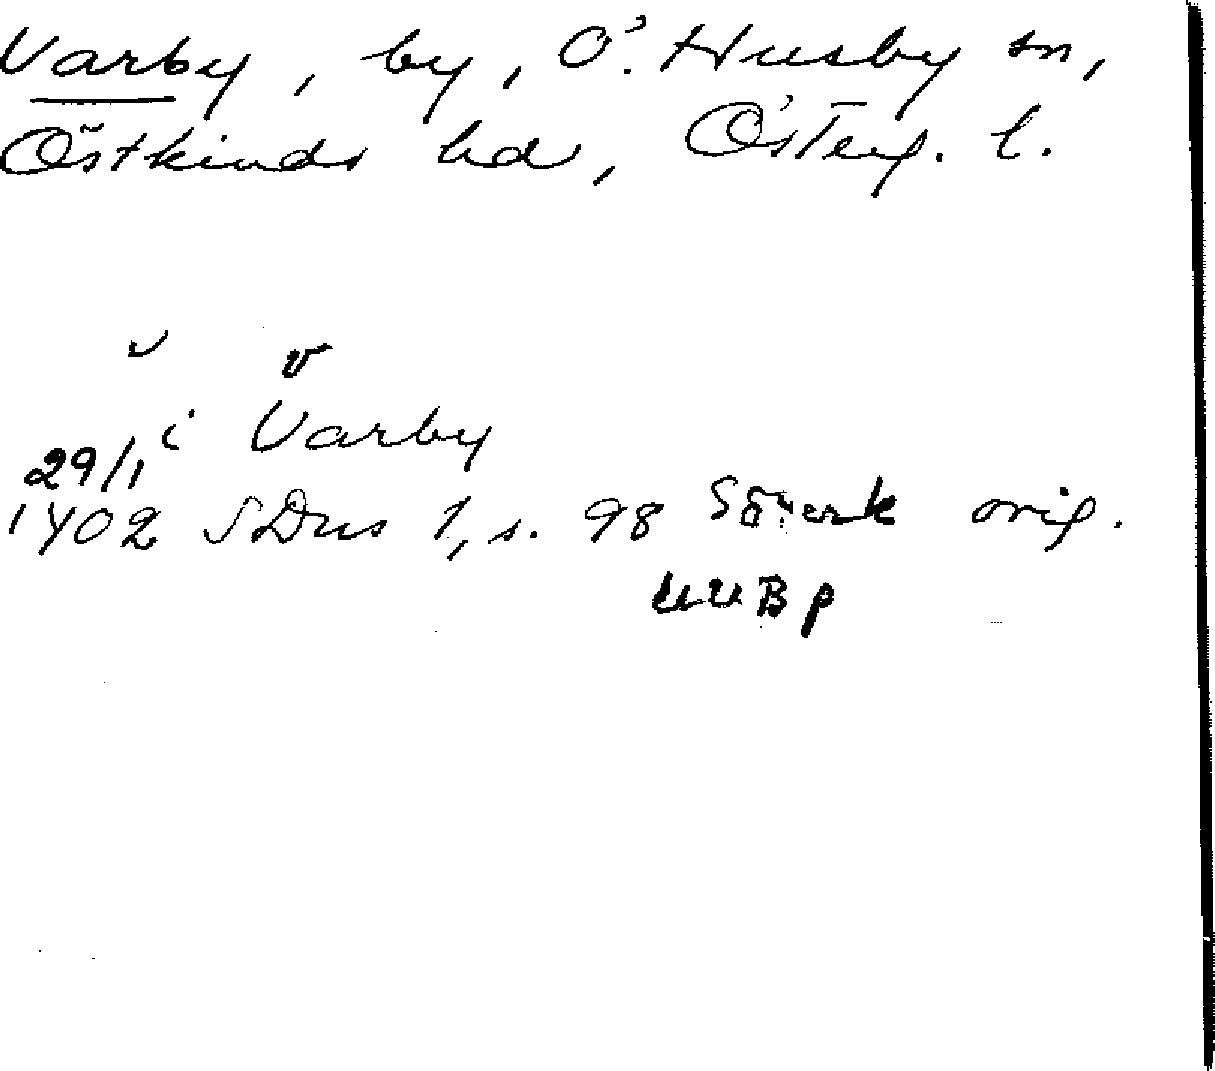 Varby, by, Ö. Husby sn,
Östkinds hd, Österg. l.
v
i Varby
29/1
1402 SDns 1, s. 98 Söderk orig.
UUB p